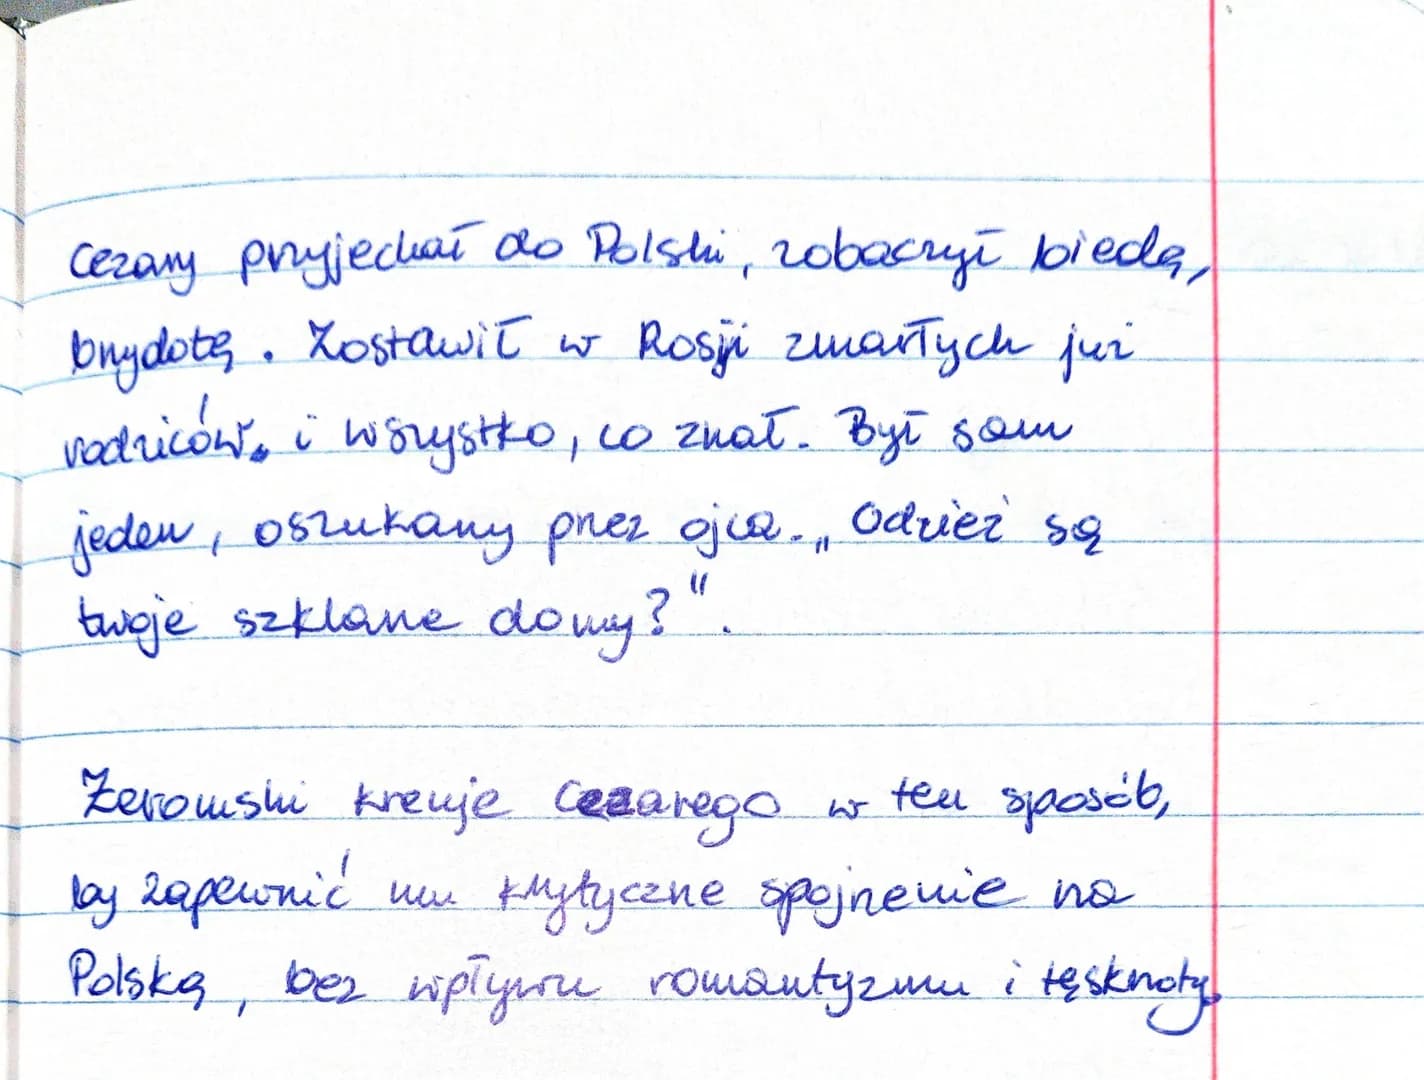 Cezary przyjechał do Polski, zobaczył biedę,
brzydotę. Zostawił w Rosji zmarłych już
rodziców. i wszystko, co znał. Był sam
jeden, oszukany przez ojca. „Gdzież są
twoje szklane domy?".
Żeromski kreuje Cezarego w ten sposób,
by zapewnić mu krytyczne spojrzenie na
Polskę, bez wpływu romantyzmu i tęsknoty.